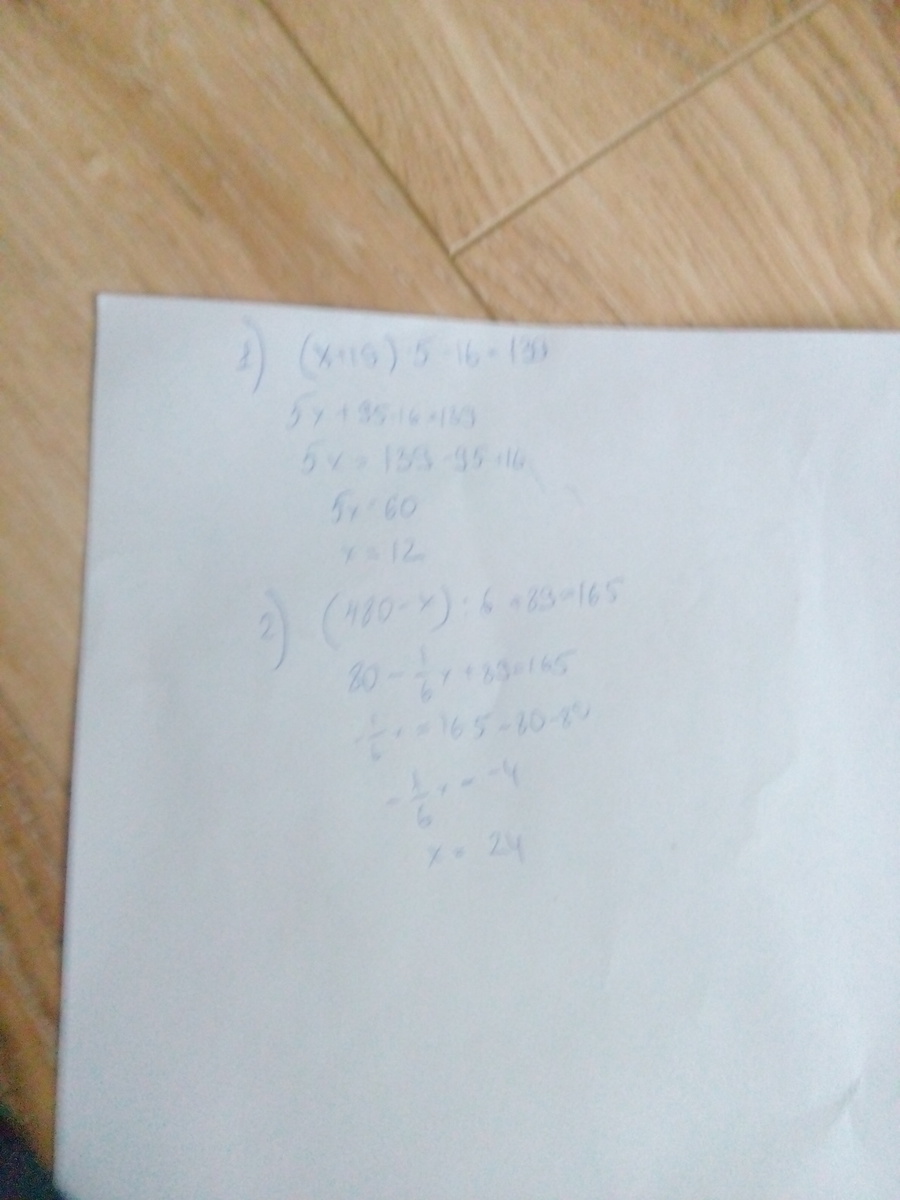 1) (x+19)·5-16=139
5x+95-16=139
5x=139-95+16
5x=60
x=12
2) (480-x):6+89=165
80-1/6x+89=165
-1/6x=165-80-89
-1/6x=-4
x=24